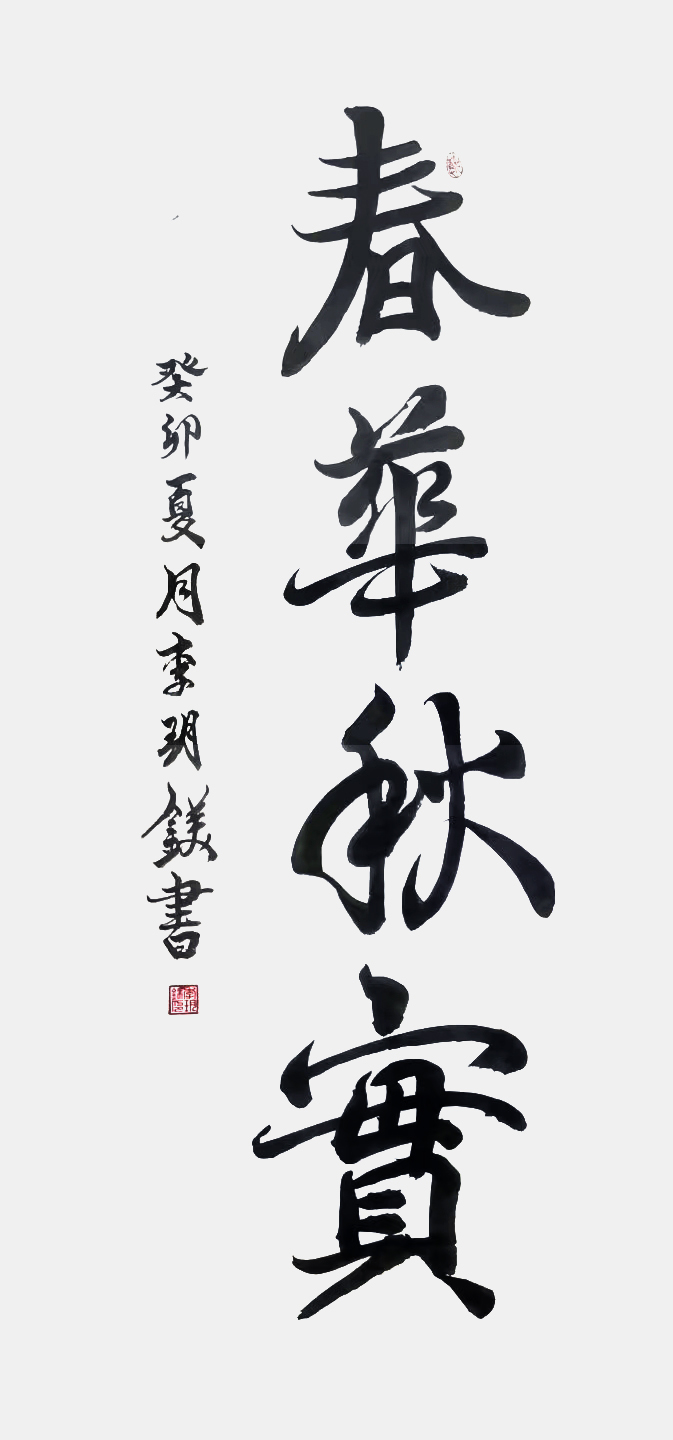 春華秋實
癸卯夏月李玥鎂書